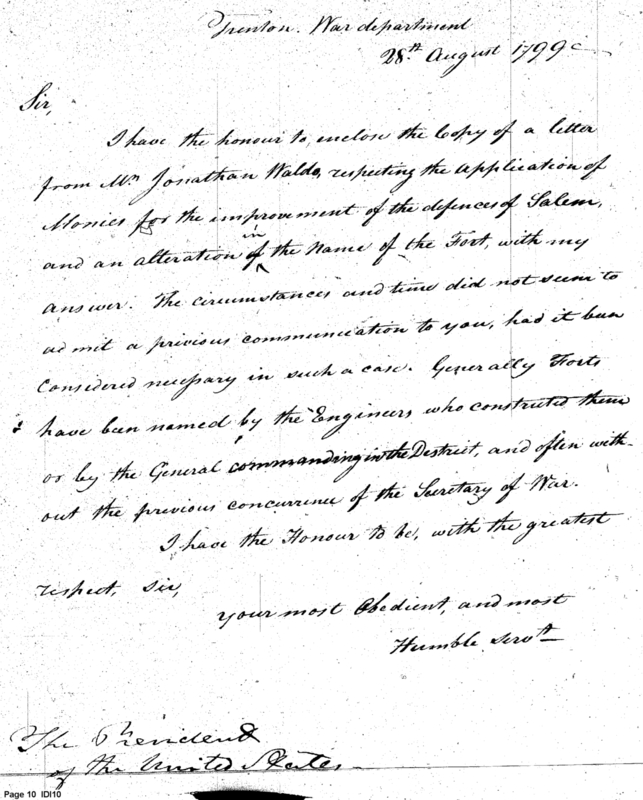 Trenton. War department
28th. August 1799
Sir,
I have the honour to, enclose the Copy of a letter
from Mr. Jonathan Waldo, respecting the application of
Monies for the improvement of the defences of Salem,
in
and an alteration of the Name of the Fort, with my
answer. The circumstances and time did not seem to
admit a privious communication to you, had it been
considered necessary in such a case. Generally Forts
have been named by the Engineers who constructed them
or by the General commanding in the District, and often with-
out the previous concurrence of the Secretary of War.
I have the Honour to be, with the greatest
respect, Sir,
your most Obedient, and most
Humble Servt
The President
of the United States
Page 10 IDI10